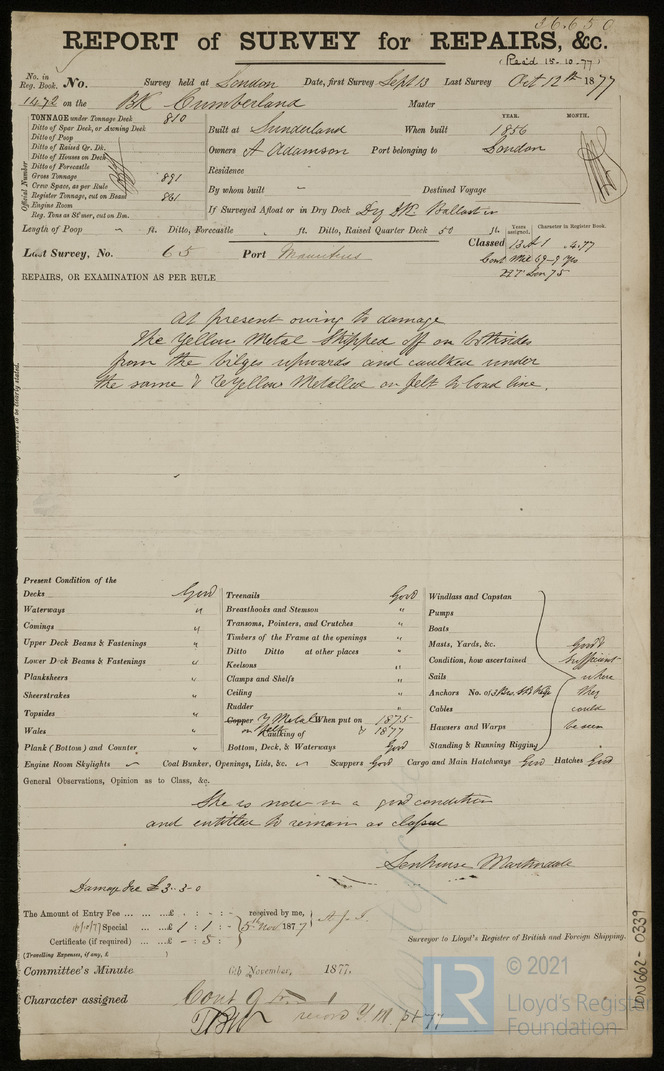 36.650
REPORT of SURVEY for REPAIRS, &c.
(Rec'd 15-10-77)
No. in Reg. Book. No. Survey held at London Date, first Survey Sept 13 Last Survey Oct 12th 1877
1472 on the Bk Cumberland Master
TONNAGE under Tonnage Deck 810
Ditto of Spar Deck, or Awning Deck
Ditto of Poop
Ditto of Raised Qr. Dk.
Ditto of Houses on Deck
Ditto of Forecastle
Gross Tonnage 891
Crew Space, as per Rule
Register Tonnage, cut on Beam 861
Engine Room
Reg. Tons as St'mer, cut on Bm.
Official Number
YEAR. MONTH.
Built at Sunderland When built 1856
Owners A Adamson Port belonging to London
Residence
By whom built " Destined Voyage
If Surveyed Afloat or in Dry Dock Dry Dk Ballast in
Length of Poop ft. Ditto, Forecastle ft. Ditto, Raised Quarter Deck 50 ft.
Years assigned. Character in Register Book.
Classed 13 A 1 4.77
Cont Mau 69-9 Yrs
Lon 75
Last Survey, No. 65 Port Mauritius
REPAIRS, OR EXAMINATION AS PER RULE
At present owing to damage
The Yellow Metal Stripped off on both sides
from the bilges upwards and caulked under
the same & ReYellow Metalled on felt to load line.
Present Condition of the
Decks Good
Waterways "
Comings "
Upper Deck Beams & Fastenings "
Lower Deck Beams & Fastenings "
Planksheers "
Sheerstrakes "
Topsides "
Wales "
Plank (Bottom) and Counter "
Treenails Good
Breasthooks and Stemson "
Transoms, Pointers, and Crutches "
Timbers of the Frame at the openings "
Ditto Ditto at other places "
Keelsons "
Clamps and Shelfs "
Ceiling "
Rudder "
Copper Y Metal When put on 1875
on Felt
Caulking of & 1877
Bottom, Deck, & Waterways Good
Windlass and Capstan
Pumps
Boats
Masts, Yards, &c.
Condition, how ascertained
Sails
Anchors No. of 3 Bws.
Cables
Hawsers and Warps
Standing & Running Rigging
Good &
sufficient
where
they
could
be seen
Engine Room Skylights Coal Bunker, Openings, Lids, &c. Scuppers Good Cargo and Main Hatchways Good Hatches Good
General Observations, Opinion as to Class, &c.
She is now in a good condition
and entitled to remain as classed
Senhouse Martindale
Damage fee £3..3..0
The Amount of Entry Fee £ : : received by me,
16/10/77 Special £ 1 : 1 : - 5 Nov. 1877
Certificate (if required) £ - : 5 :
(Travelling Expenses, if any, £ )
Surveyor to Lloyd's Register of British and Foreign Shipping.
Committee's Minute 6th November, 1877.
Character assigned Cont 9
record Y.M. pt 77
LON662-0339
© 2021
LR
Lloyd's Register
Foundation